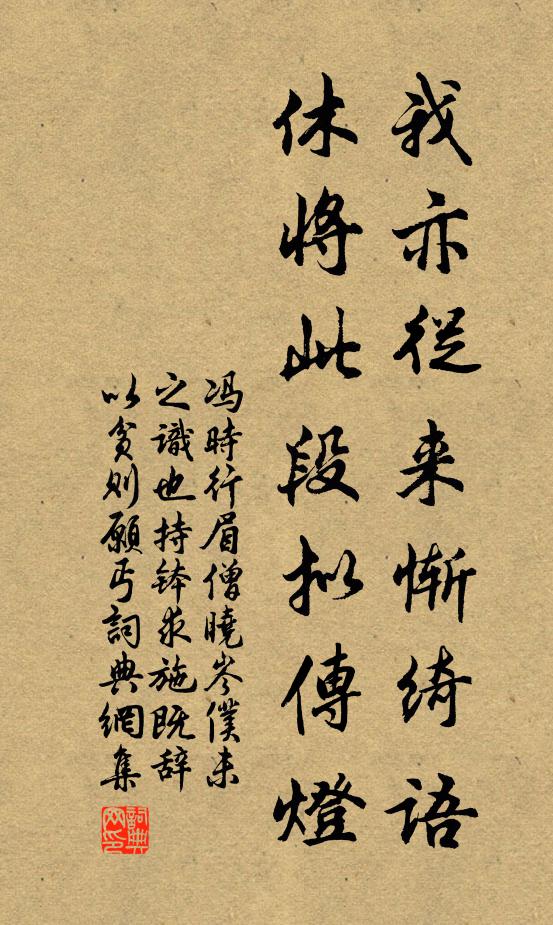 我亦從来惭綺語
休將此段拟傳燈
冯時行眉僧曉岑僕未
之識也持钵求施既辞
以贫则願丐詞典網集
詞典
网印